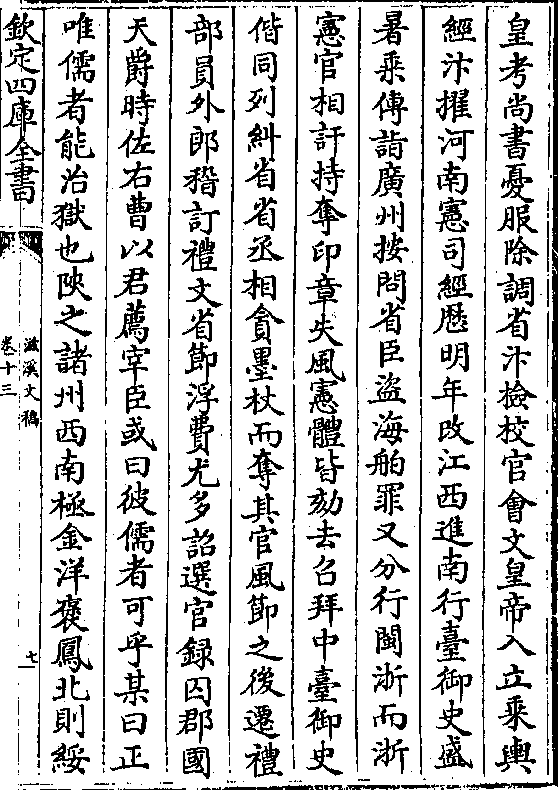 皇考尚書憂服除調省汴檢校官會文皇帝入立乘輿
經汴擢河南憲司經歷明年改江西進南行臺御史盛
暑乘傳詣廣州按問省臣盜海舶罪又分行閩浙而浙
憲官相訐持奪印章失風憲體皆劾去召拜中臺御史
偕同列糾省省丞相貪墨杖而奪其官風節之後遷禮
部員外郎稽訂禮文省節浮費尤多詔選官録囚郡國
天爵時佐右曹以君薦宰臣或曰彼儒者可乎某曰正
唯儒者能治獄也陝之諸州西南極金洋褒鳳北則綏
欽定四庫全書
滋溪文稿
卷十三
七